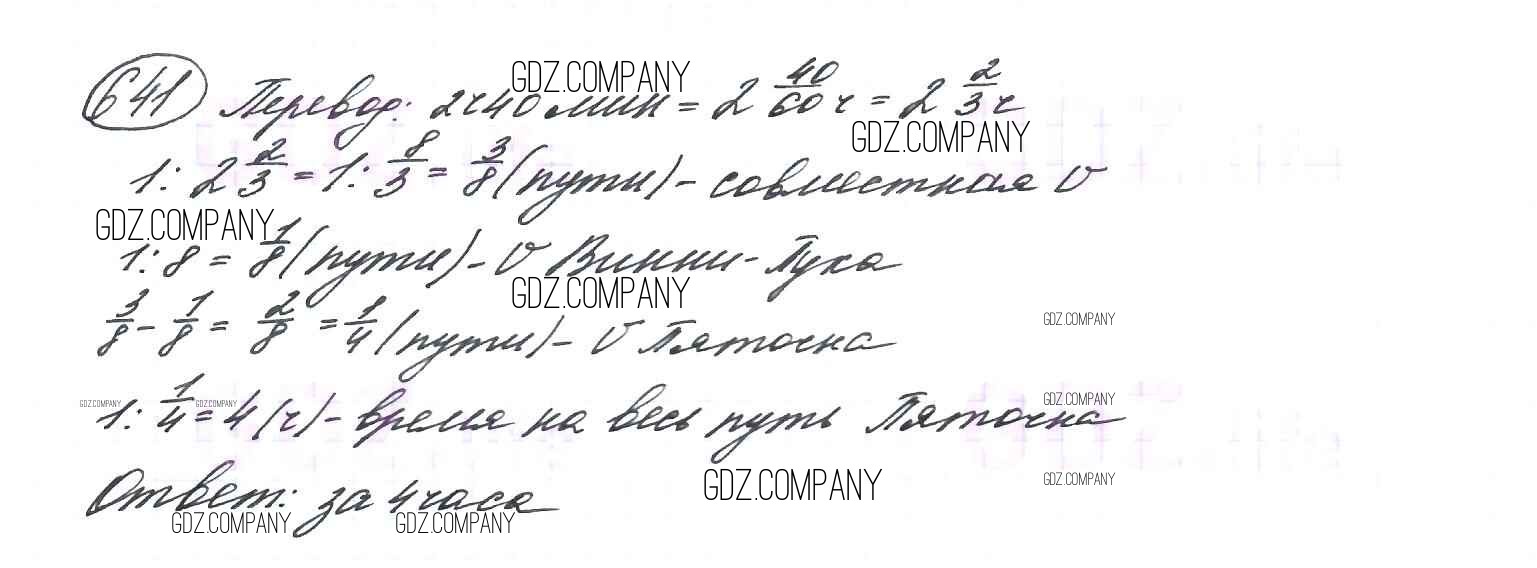 GDZ.COMPANY
641 Перевод: 2ч40мин = 2 40/60 ч = 2 2/3 ч
GDZ.COMPANY
1: 2 2/3 = 1: 8/3 = 3/8 (пути) - совместная V
GDZ.COMPANY
1: 8 = 1/8 (пути) - V Винни-Пуха
GDZ.COMPANY
3/8 - 1/8 = 2/8 = 1/4 (пути) - V Пяточка
GDZ.COMPANY
GDZ.COMPANY GDZ.COMPANY GDZ.COMPANY
1: 1/4 = 4 (ч) - время на весь путь Пяточка
GDZ.COMPANY GDZ.COMPANY
Ответ: за 4 часа
GDZ.COMPANY GDZ.COMPANY